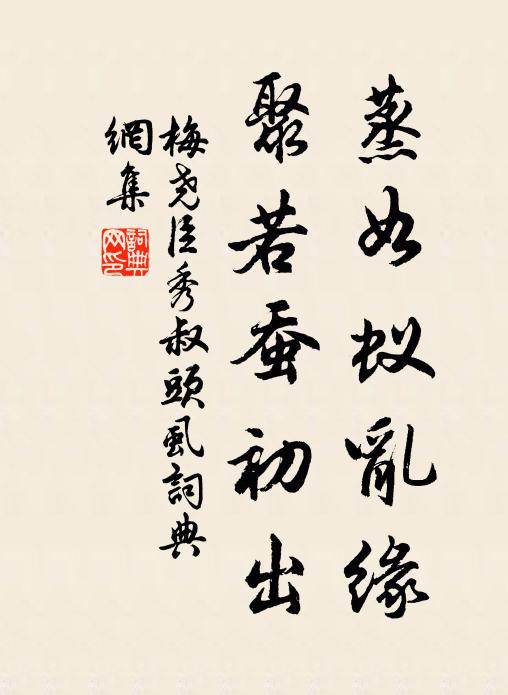 蒸如蚁亂缘
聚若蚕初出
梅尧臣秀叔頭虱詞典
網集
詞典
网印